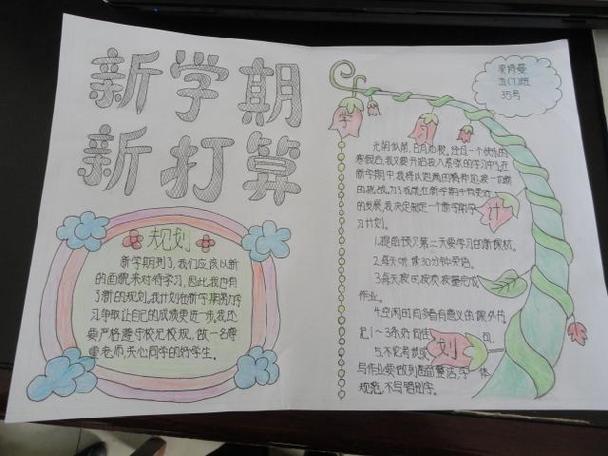 新学期
新打算
规划
新学期到了,我们应该以新
的面貌来对待学习,因此,我也有
了新的规划。我计划在新学期努力学
习争取让自己的成绩更进一步。我还
要严格遵守校纪校规,做一名尊
重老师,关心同学的好学生。
五(7)班
35号
学
习
计
划
光阴似箭,日月如梭。经过一个快乐的
寒假后,我又要开始投入紧张的学习中了。在
新学期中,我将以饱满的精神迎接一切新
的挑战。为了能在新学期中有更好
的发展,我决定制定一个新学期学
习计划。
1.提前预习第二天要学习的新课材。
2.每天听、读30分钟英语。
3.每天按时按质按量完成
作业。
4.空闲时间多看有意义的课外书
记1~3条好词佳句
5.不论考试或
写作业要做到书面整洁,字体
规范,不写错别字。